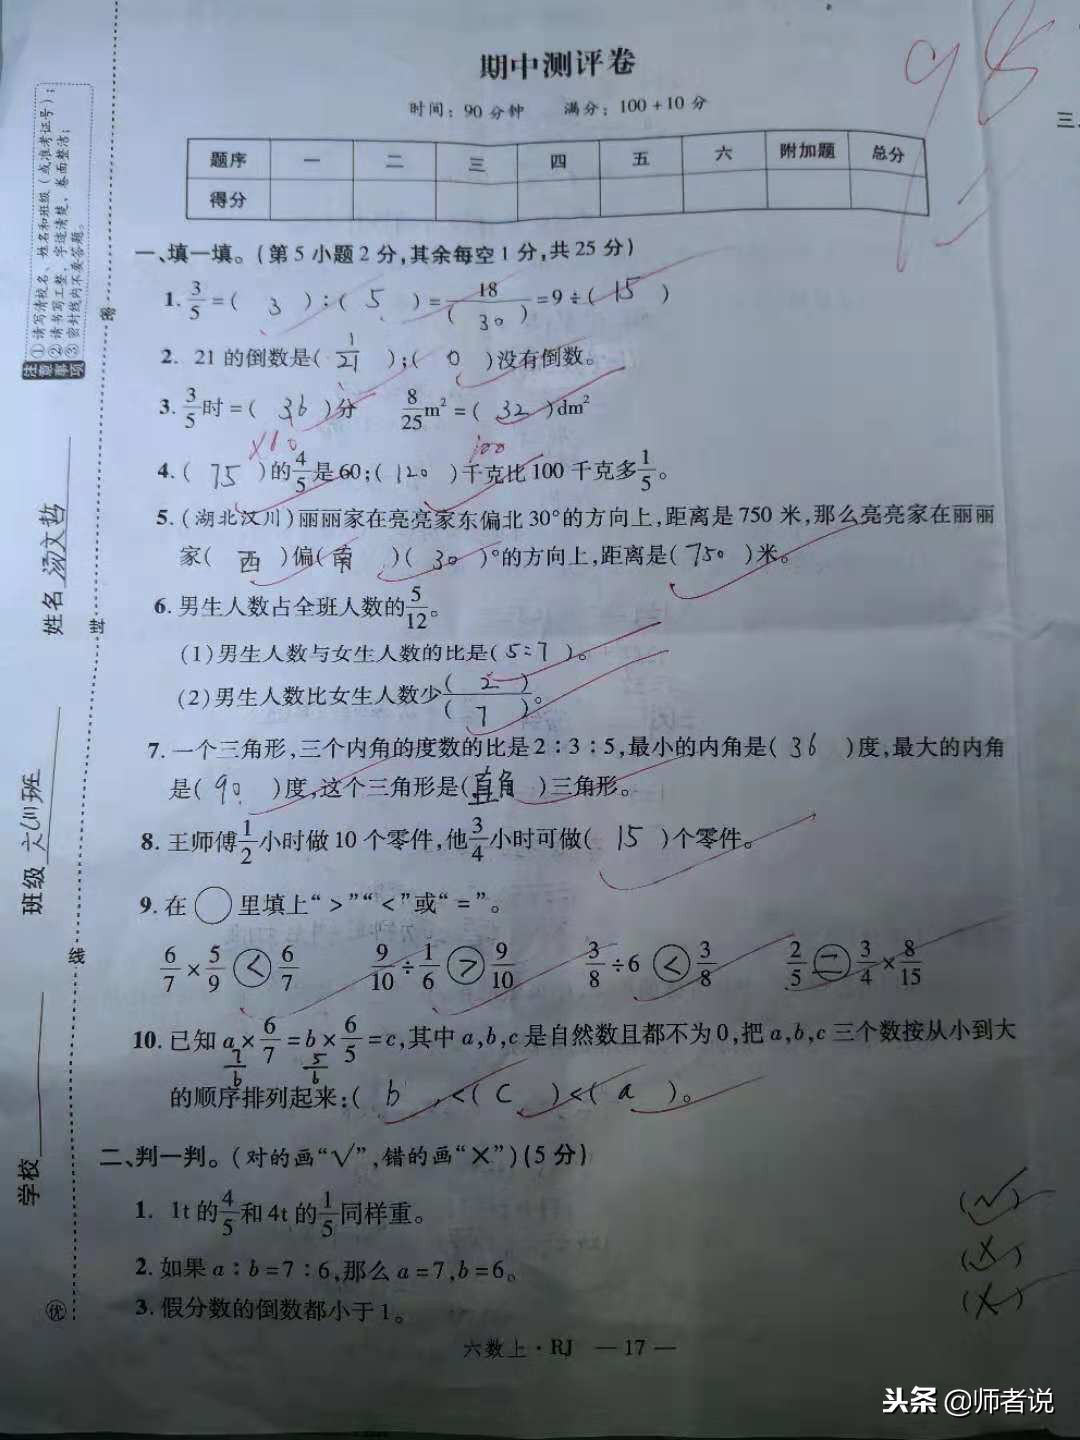 期中测评卷
98
时间：90分钟 满分：100+10分
三、
题序 一 二 三 四 五 六 附加题 总分
得分
注意事项
①请写清校名、姓名和班级（或准考证号）；
②请书写工整，字迹清楚，卷面整洁；
③密封线内不要答题。
密 封 线
姓名 汤文哲
班级 六(1)班
学校
一、填一填。（第5小题2分，其余每空1分，共25分）
1. 3/5=( 3 )：( 5 )=18/( 30 )=9÷( 15 )
2. 21的倒数是( 1/21 )；( 0 )没有倒数。
3. 3/5时=( 36 )分 8/25m²=( 32 )dm²
×60 100
4. ( 75 )的4/5是60；( 120 )千克比100千克多1/5。
5.（湖北汉川）丽丽家在亮亮家东偏北30°的方向上，距离是750米，那么亮亮家在丽丽
家( 西 )偏( 南 )( 30 )°的方向上，距离是( 750 )米。
6. 男生人数占全班人数的5/12。
(1)男生人数与女生人数的比是( 5:7 )。
(2)男生人数比女生人数少( 2 )/( 7 )。
7. 一个三角形，三个内角的度数的比是2：3：5，最小的内角是( 36 )度，最大的内角
是( 90 )度，这个三角形是( 直角 )三角形。
8. 王师傅1/2小时做10个零件，他3/4小时可做( 15 )个零件。
9. 在○里填上“>”“<”或“=”。
6/7×5/9 < 6/7 9/10÷1/6 > 9/10 3/8÷6 < 3/8 2/5 = 3/4×8/15
10. 已知a×6/7=b×6/5=c，其中a,b,c是自然数且都不为0，把a,b,c三个数按从小到大
7/6 5/6
的顺序排列起来：( b )<( c )<( a )。
二、判一判。（对的画“√”，错的画“×”）(5分)
1. 1t的4/5和4t的1/5同样重。 (√)
2. 如果a：b=7：6，那么a=7，b=6。 (×)
3. 假分数的倒数都小于1。 (×)
优
六数上·RJ —17—
头条 @师者说